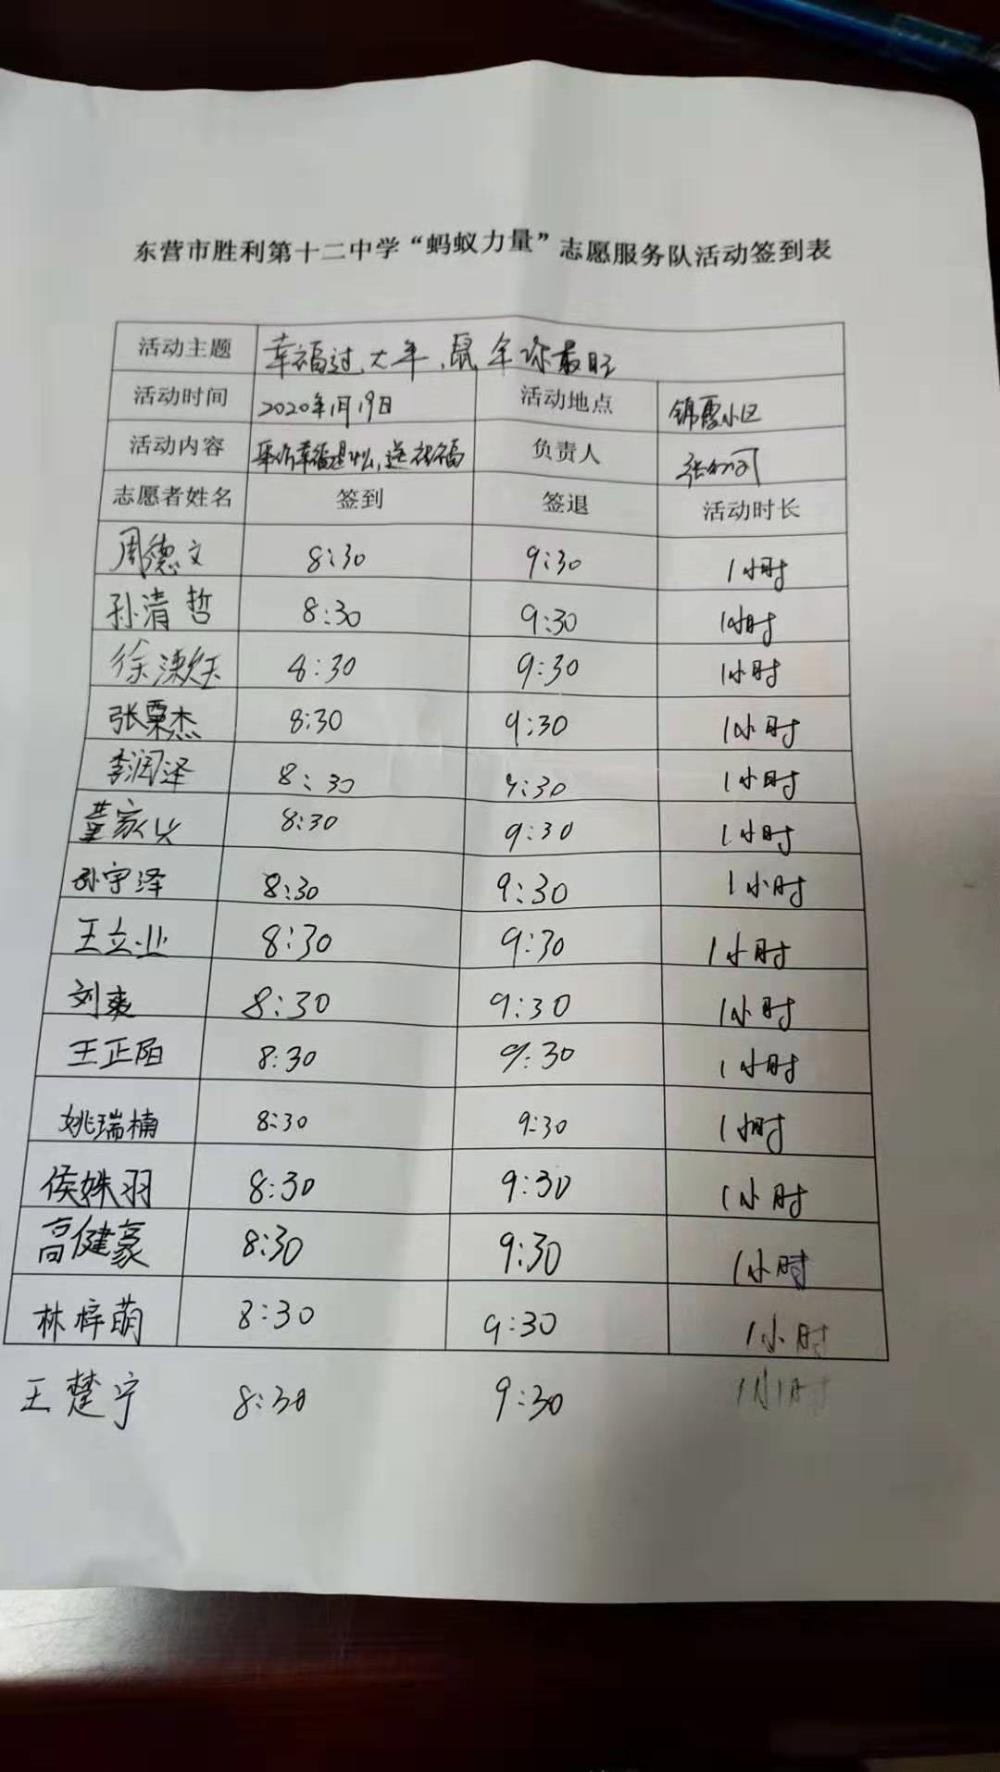 东营市胜利第十二中学“蚂蚁力量”志愿服务队活动签到表
活动主题 幸福过大年，鼠年你最旺
活动时间 2020年1月19日 活动地点 锦霞小区
活动内容 幸福是什么，送祝福 负责人 张
志愿者姓名 签到 签退 活动时长
周德文 8:30 9:30 1小时
孙清哲 8:30 9:30 1小时
徐 8:30 9:30 1小时
张粟杰 8:30 9:30 1小时
李润泽 8:30 9:30 1小时
董家兴 8:30 9:30 1小时
孙宇泽 8:30 9:30 1小时
王立业 8:30 9:30 1小时
刘爽 8:30 9:30 1小时
王正阳 8:30 9:30 1小时
姚瑞楠 8:30 9:30 1小时
侯姝羽 8:30 9:30 1小时
高健豪 8:30 9:30 1小时
林梓萌 8:30 9:30 1小时
王楚宁 8:30 9:30 1小时